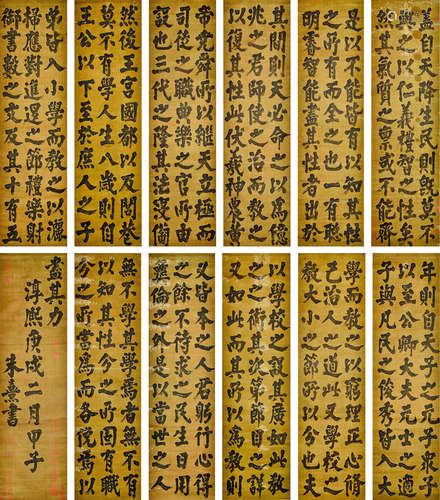 蓋自天降生民則既莫不
與之以仁義禮智之性矣
然其氣質之稟或不能齊
是以不能皆有以知其性
之所有而全之也一有聰
明睿智能盡其性者出於
其間則天必命之以為億
兆之君師使之治而教之
以復其性此伏羲神農黃
帝堯舜所以繼天立極而
司徒之職典樂之官所由
設也三代之隆其法寖備
然後王宮國都以及閭巷
莫不有學人生八歲則自
王公以下至於庶人之子
弟皆入小學而教之以灑
掃應對進退之節禮樂射
御書數之文及其十有五
年則自天子之元子衆子
以至公卿大夫元士之適
子與凡民之俊秀皆入大
學而教之以窮理正心修
己治人之道此又學校之
教大小之節所以分也夫
以學校之設其廣如此教
之術其次第節目之詳
又如此而其所以為教則
又皆本之人君躬行心得
之餘不待求之民生日用
彝倫之外是以當世之人
無不學其學焉者無不有
以知其性分之所固有職
分之所當為而各俛焉以
盡其力
淳熙庚戌二月甲子
朱熹書